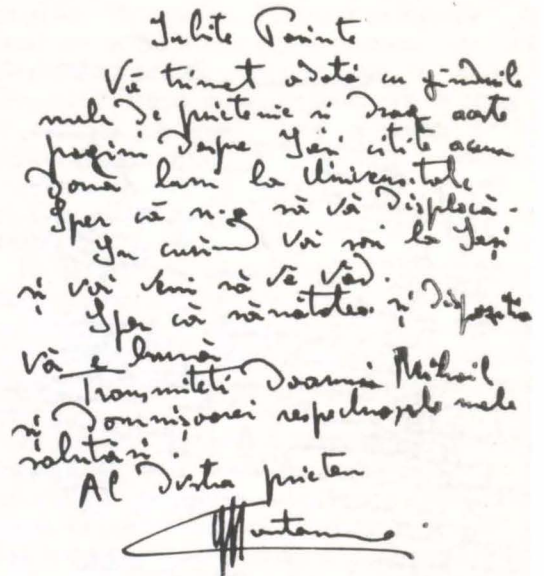 Iubite Părinte
Vă trimet odată cu gândurile
mele de prietenie și drag aceste
pagini despre Iași citite acum
două luni la Universitate
Sper că n-o să vă displacă.
În curând voi veni la Iași
și voi veni să vă văd.
Sper că sănătatea și dispoziția
Vă e bună
Transmiteți Doamnei Mihail
și Domnișoarei respectuoasele mele
salutări.
Al Dvstra prieten